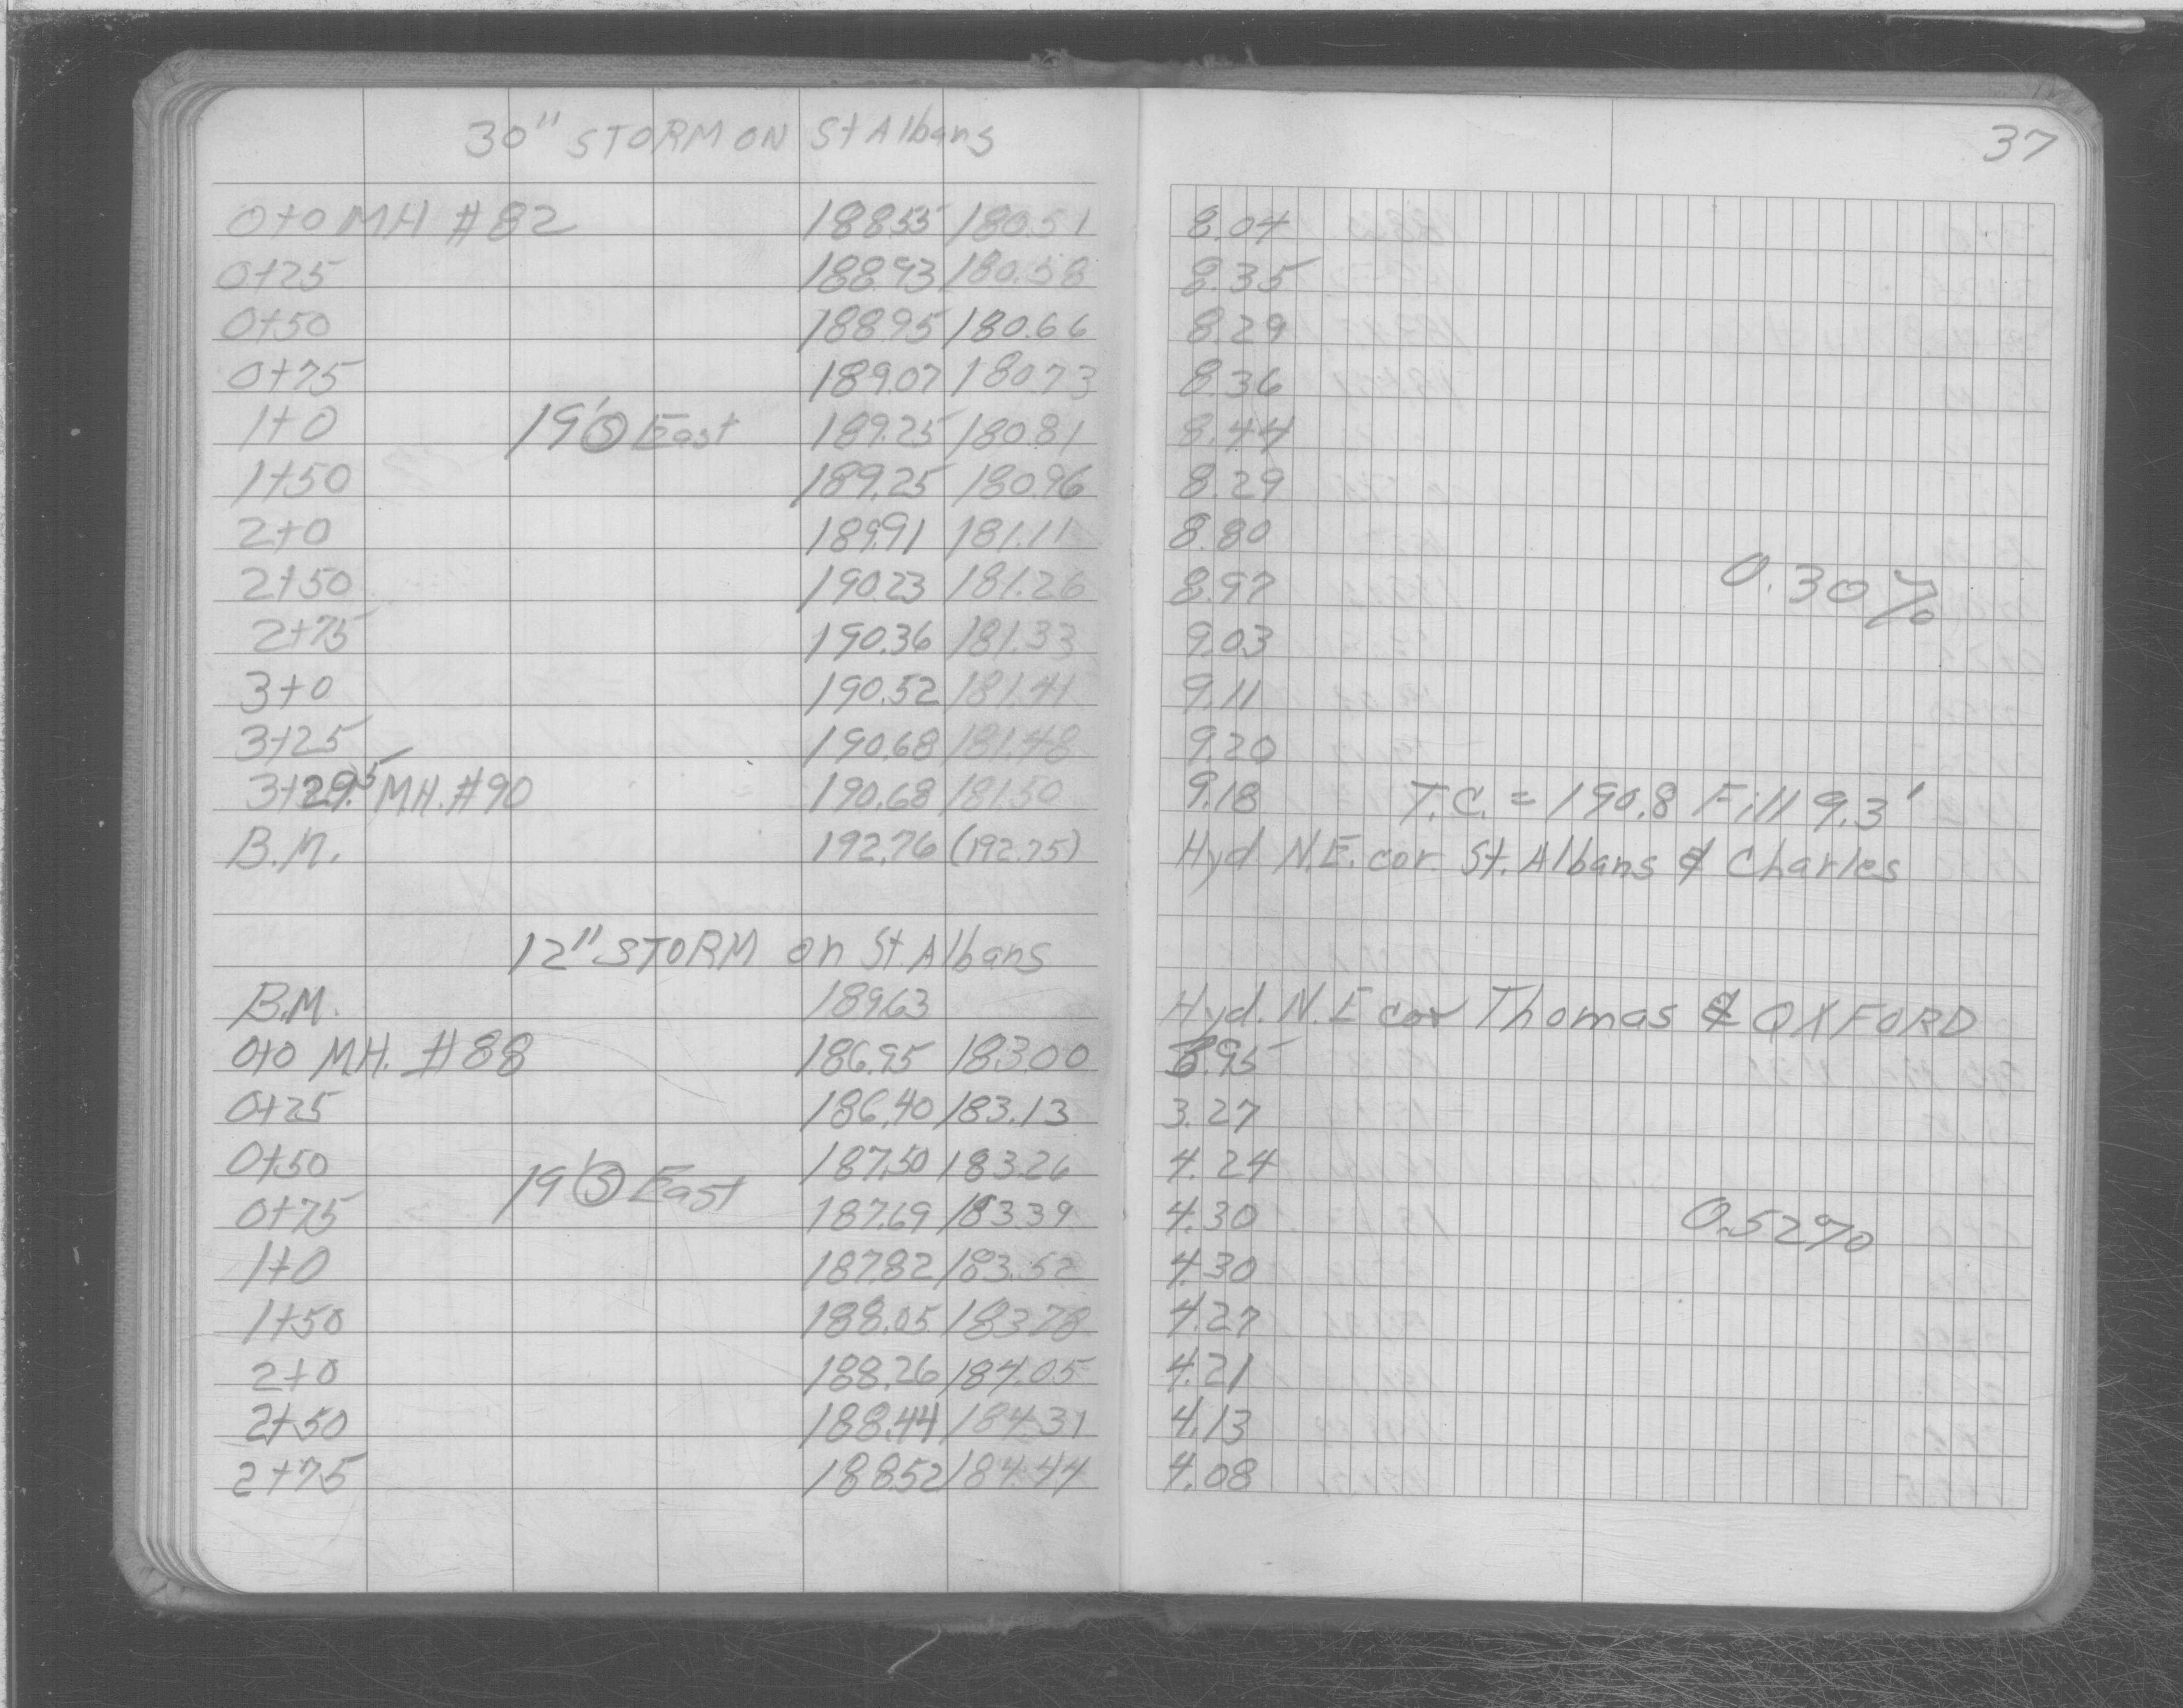 37
30" STORM ON St Albans
0+0 MH #82 188.55 180.51 8.04
0+25 188.93 180.58 8.35
0+50 188.95 180.66 8.29
0+75 189.07 180.73 8.36
1+0 19' Ⓢ East 189.25 180.81 8.44
1+50 189.25 180.96 8.29
2+0 189.91 181.11 8.80
2+50 190.23 181.26 8.97 0.30%
2+75 190.36 181.33 9.03
3+0 190.52 181.41 9.11
3+25 190.68 181.48 9.20
3+29.5 MH. #90 190.68 181.50 9.18 T.C. = 190.8 Fill 9.3'
B.M. 192.76 (192.75) Hyd N.E. cor. St. Albans & Charles
12" STORM on St. Albans
B.M. 189.63 Hyd. N.E cor Thomas & OXFORD
0+0 MH. #88 186.95 183.00 3.95
0+25 186.40 183.13 3.27
0+50 19' Ⓢ East 187.50 183.26 4.24
0+75 187.69 183.39 4.30 0.52%
1+0 187.82 183.52 4.30
1+50 188.05 183.78 4.27
2+0 188.26 184.05 4.21
2+50 188.44 184.31 4.13
2+75 188.52 184.44 4.08